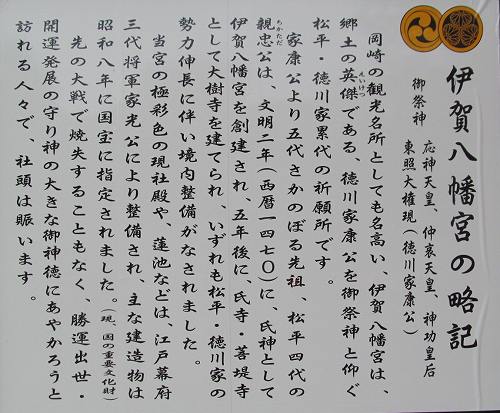 伊賀八幡宮の略記
御祭神
応神天皇、仲哀天皇、神功皇后
東照大権現(徳川家康公)
岡崎の観光名所としても名高い、伊賀八幡宮は、
郷土の英傑である、徳川家康公を御祭神と仰ぐ
えいけつ
松平・徳川家累代の祈願所です。
家康公より五代さかのぼる先祖、松平四代の
親忠公は、文明二年(西暦一四七〇)に、氏神として
ちかただ
伊賀八幡宮を創建され、五年後に、氏寺・菩提寺
として大樹寺を建てられ いずれも松平・徳川家の
勢力伸長に伴い境内整備がなされました。
当宮の極彩色の現社殿や、蓮池などは、江戸幕府
三代将軍家光公により整備され、主な建造物は
昭和八年に国宝に指定されました。(現、国の重要文化財)
先の大戦で焼失することもなく、勝運出世・
開運発展の守り神の大きな御神徳にあやかろうと
訪れる人々で、社頭は賑います。